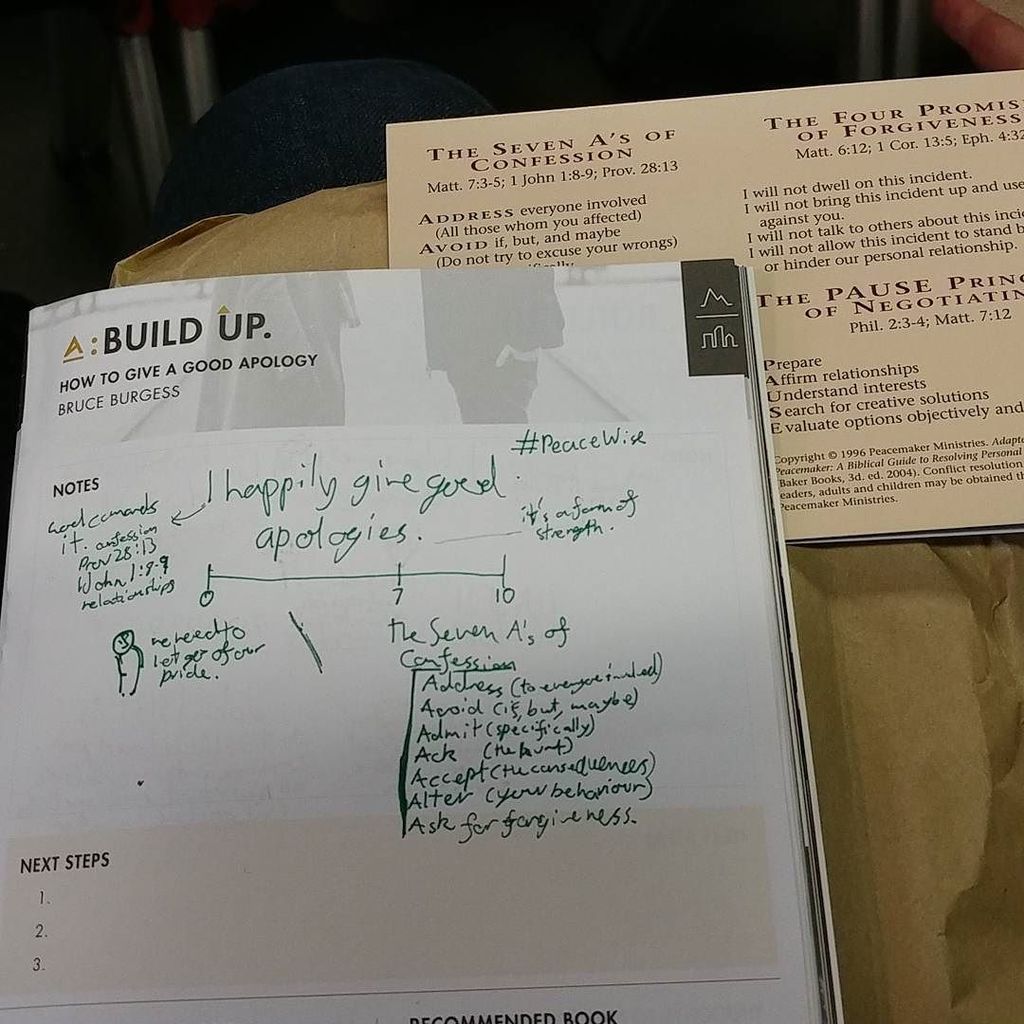 THE SEVEN A'S OF
CONFESSION
Matt. 7:3-5; 1 John 1:8-9; Prov. 28:13
ADDRESS everyone involved
(All those whom you affected)
AVOID if, but, and maybe
(Do not try to excuse your wrongs)
THE FOUR PROMIS
OF FORGIVENESS
Matt. 6:12; 1 Cor. 13:5; Eph. 4:32
I will not dwell on this incident.
I will not bring this incident up and use
against you.
I will not talk to others about this inci
I will not allow this incident to stand b
or hinder our personal relationship.
THE PAUSE PRINC
OF NEGOTIATIN
Phil. 2:3-4; Matt. 7:12
Prepare
Affirm relationships
Understand interests
Search for creative solutions
Evaluate options objectively and
Copyright © 1996 Peacemaker Ministries. Adapt
Peacemaker: A Biblical Guide to Resolving Personal
Baker Books, 3d. ed. 2004). Conflict resolution
eaders, adults and children may be obtained th
Peacemaker Ministries.
A:BUILD UP.
HOW TO GIVE A GOOD APOLOGY
BRUCE BURGESS
#PeaceWise
NOTES
I happily give good
apologies.
it's a form of
strength.
it. confession
Prov 28:13
1 John 1:8-9
relationships
0 7 10
we need to
let go of our
pride.
The Seven A's of
Confession
Address (to everyone involved)
Avoid (if, but, maybe)
Admit (specifically)
Ack (the hurt)
Accept (the consequences)
Alter (your behaviour)
Ask for forgiveness.
NEXT STEPS
1.
2.
3.
RECOMMENDED BOOK